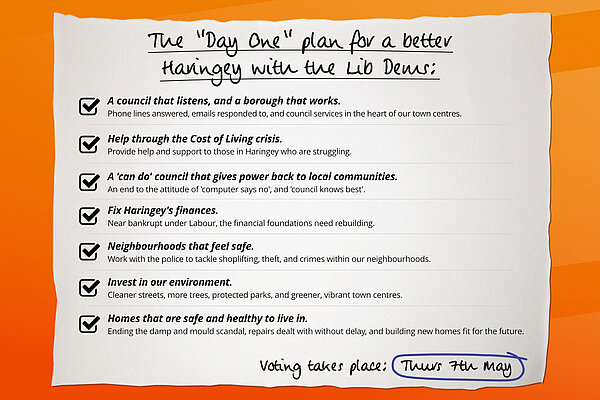 The "Day One" plan for a better
Haringey with the Lib Dems:
A council that listens, and a borough that works.
Phone lines answered, emails responded to, and council services in the heart of our town centres.
Help through the Cost of Living crisis.
Provide help and support to those in Haringey who are struggling.
A 'can do' council that gives power back to local communities.
An end to the attitude of 'computer says no', and 'council knows best'.
Fix Haringey's finances.
Near bankrupt under Labour, the financial foundations need rebuilding.
Neighbourhoods that feel safe.
Work with the police to tackle shoplifting, theft, and crimes within our neighbourhoods.
Invest in our environment.
Cleaner streets, more trees, protected parks, and greener, vibrant town centres.
Homes that are safe and healthy to live in.
Ending the damp and mould scandal, repairs dealt with without delay, and building new homes fit for the future.
Voting takes place: Thurs 7th May